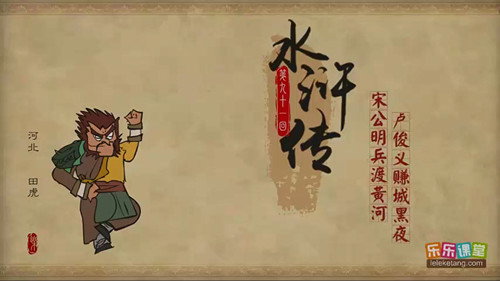 水浒传
第九十一回
宋公明兵渡黄河
卢俊义赚城黑夜
河北 田虎
乐乐课堂
leleketang.com